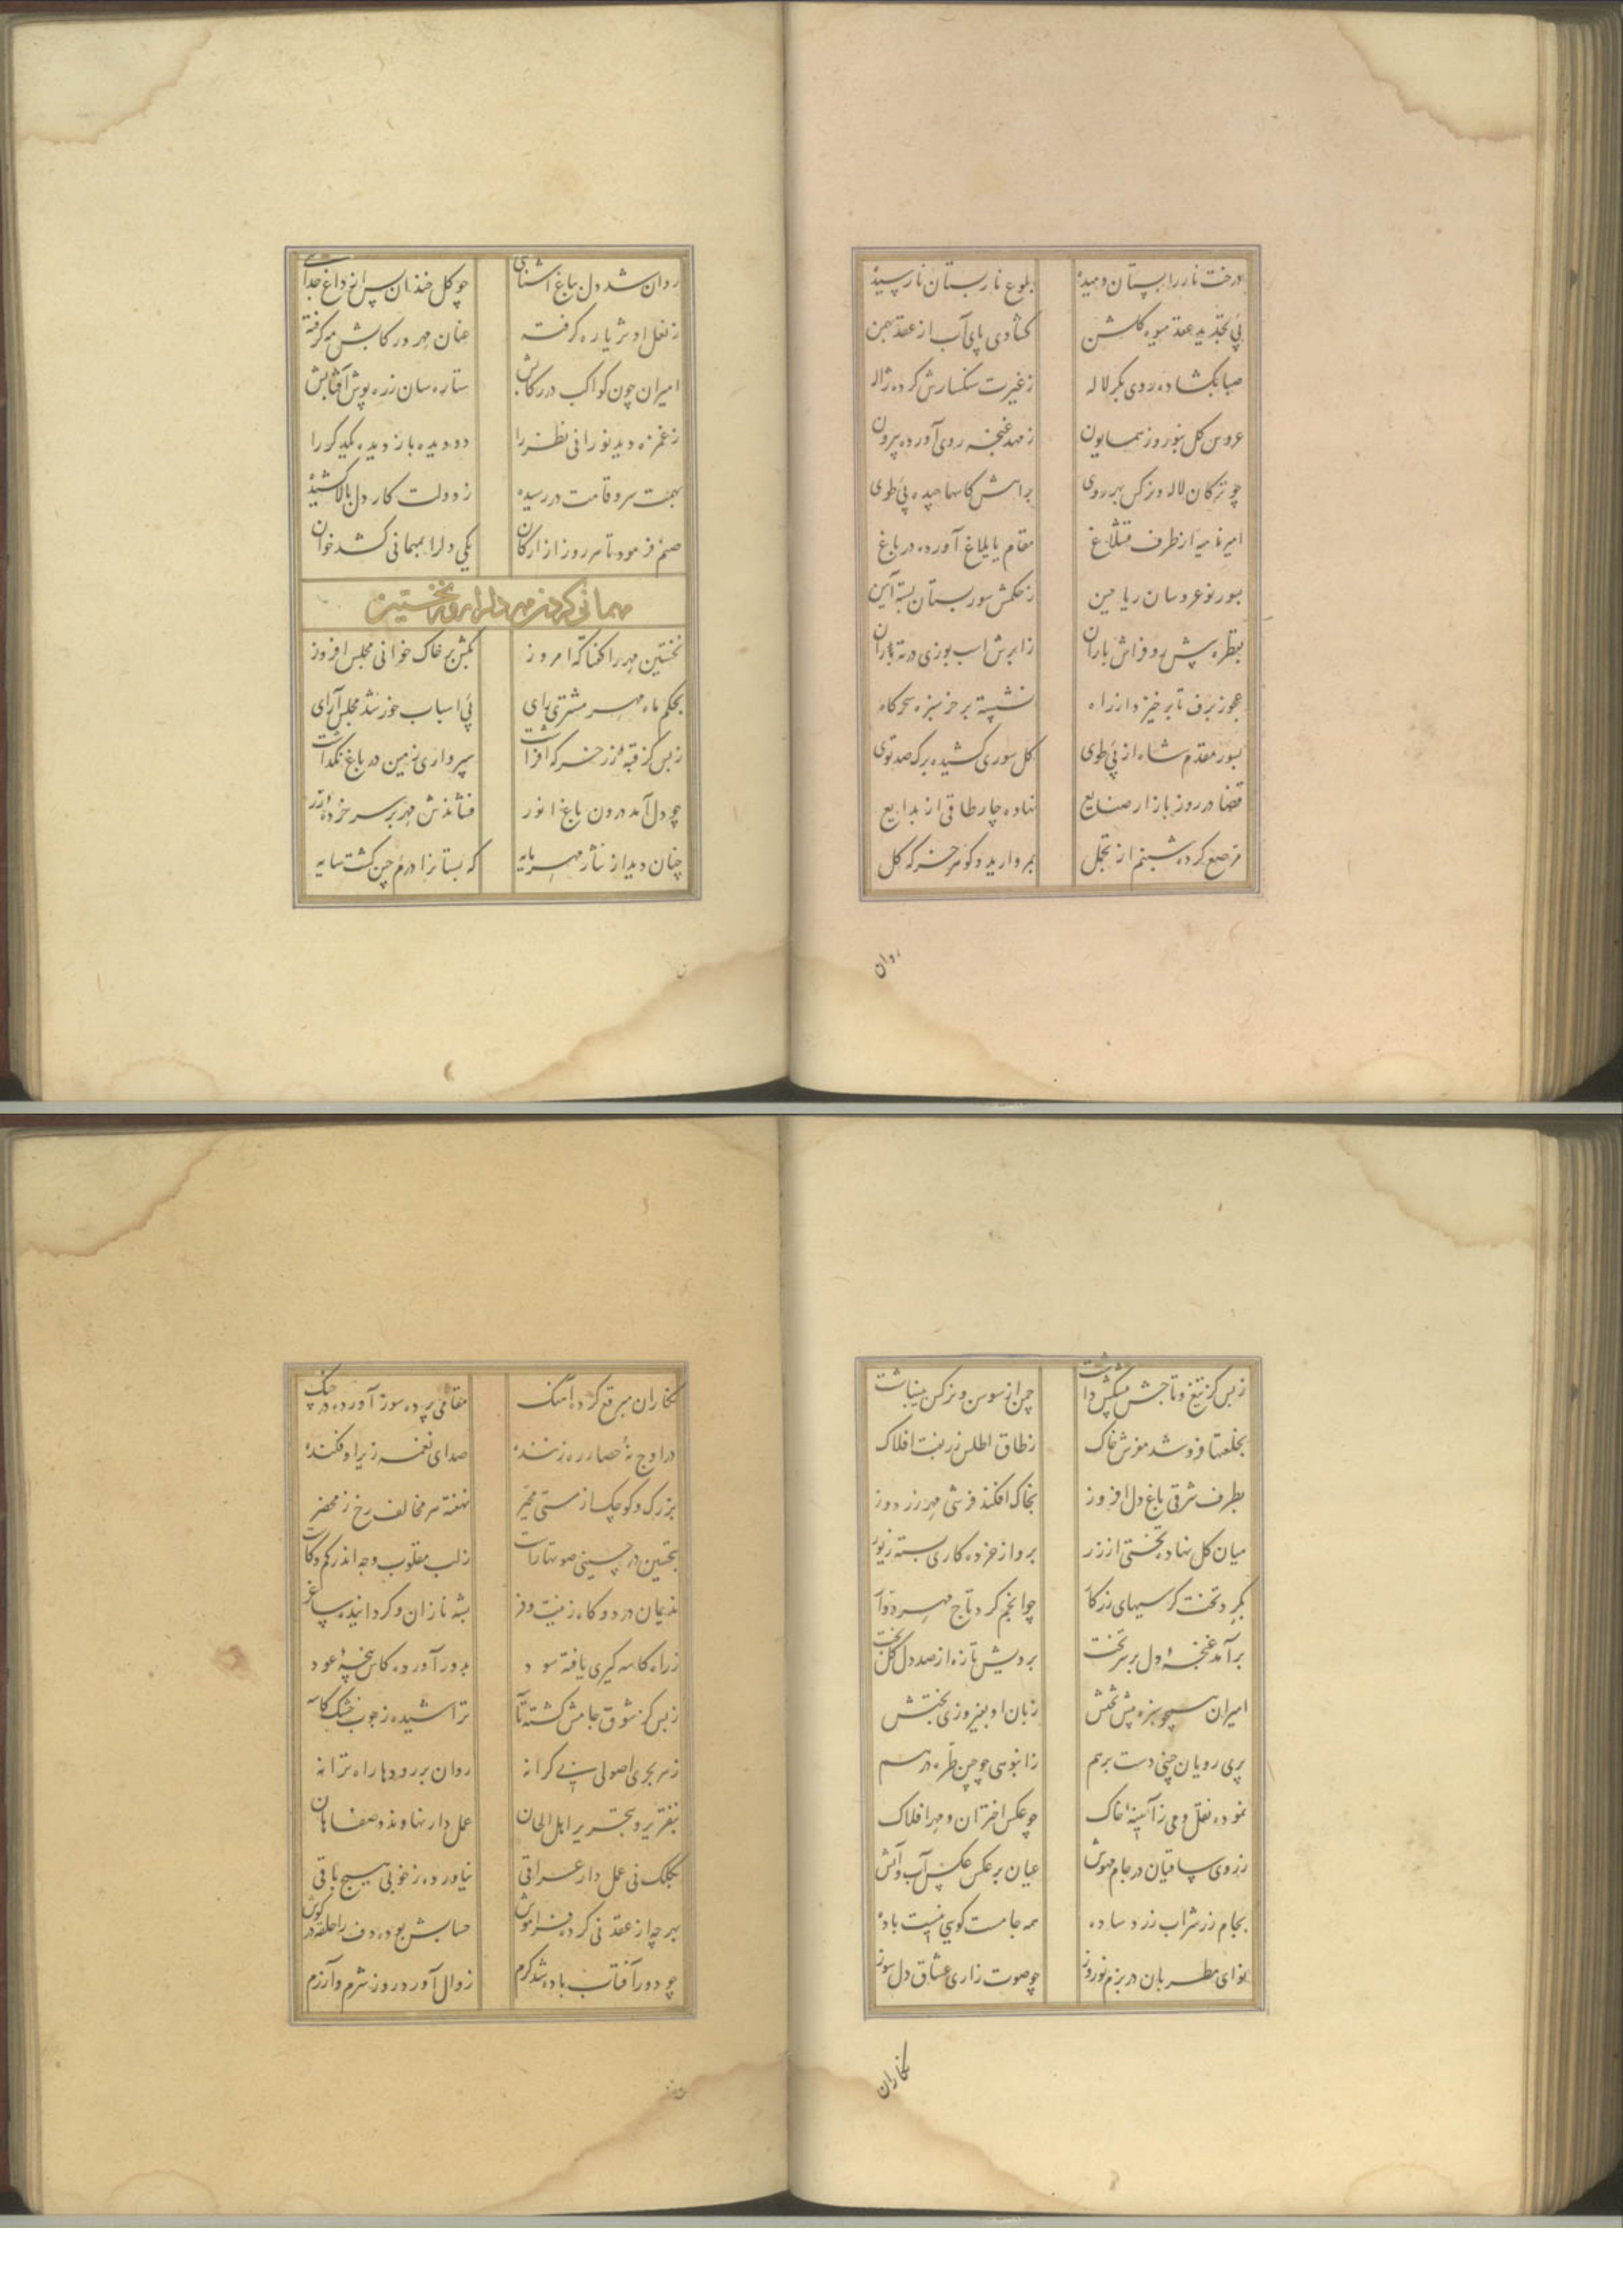 درخت نار را پستان دمیده بلوغ نارپستان نارسیده
پی تجدید عقد میوه گلشن گشادی پای آب از عقد بهمن
صبا بگشاده روی بکر لاله ز غیرت سنگسارش کرده ژاله
عروس گل بنوروز همایون ز مهد غنچه روی آورده بیرون
چو ترکان لاله و نرگس بهر روی براهش کاسها چیده پی طوی
امیر نامیه از طرف قشلاغ مقام یایلاغ آورده در باغ
بسور نوعروسان ریاحین ز حکمش سور بستان بسته آیین
بقطره پیش رو فراش باران ز ابرش اسب بوزی در ته باران
عجوز برف تا برخیزد از راه نشسته بر خر سبزه سحرگاه
بسور مقدم شاه از پی طوی گل سوری کشیده برگ صد توی
قضا در روز بازار صنایع نهاده چارطاقی از بدایع
مرصع کرده شبنم از تجمل بمروارید و گوهر خرگه گل
روان
روان شد دل بباغ آشنایی چو گل خندان پس از داغ جدایی
ز نعل او ثریا ره گرفته عنان مهر و رکابش مه گرفته
امیران چون کواکب در رکابش ستاره سان زره پوش آفتابش
ز غمزه دید نورانی نظر را دو دیده باز دیده یکدگر را
بهمت سرو قامت در رسیده ز دولت کار دل بالا کشیده
صنم فرمود تا هر روز از ارکان یکی دل را بمهمانی کشد خوان
مهمانی کردن مهر دل را روز نخستین
نخستین مهر را گفتا که امروز بکش بر خاک خوانی مجلس افروز
بحکم ماه مهر مشتری رای پی اسباب خور شد مجلس آرای
ز بس کز قبه زر خرگه افراشت سپرواری زمین در باغ نگذاشت
چو دل آمد درون باغ انور فشاندش مهر بر سر خرده زر
چنان دید از نثار مهر پایه که بستانرا درم چین گشت سایه
ز بس کز تیغ و تاجش پیشکش داشت چمن از سوسن و نرگس بینباشت
بخلعتها فزو شد مفرش خاک ز طاق اطلس زربفت افلاک
بطرف شرقی باغ دل افروز بخاک افکند فرشی مهر زردوز
میان گل نهاد تختی از زر بر و از خرده کاری بسته زیور
بگرد تخت کرسیهای زرکار چو انجم کرد تاج مهر دوار
برآمد غنچهٔ دل بر سر تخت برویش تازه از صد دل گل بخت
امیران همچو سبزه پیش تختش زبان او بفیروزی بختش
پری رویان چینی دست برهم ز انبوهی چو چین طره درهم
نموده نقل و می ز آیینه خاک چو عکس اختران و مهر افلاک
ز روی ساقیان در جام مهوش عیان برعکس عکس آب و آتش
بجام زر شراب زرد ساده همه جامست گویی نیست باده
نوای مطربان در بزم نوروز چو صوت زاری عشاق دل سوز
نگاران
نگاران مبرقع کرده آهنگ مقامی پرده سوز آورده در چنگ
در اوج نُه حصار ره زننده صدای نغمه زیر اوفکنده
بزرگ و کوچک از مستی مخیر نهفته سر مخالف رخ ز محضر
بتحسین در حسینی صوتها راست ز لب مقلوب وجد اندر کم و کاست
ندیمان در دوگاه زینت و فر بشه نازان و گردانیده ساغر
ز راه کاسه گیری یافته سود بدور آورده کاس پنجه عود
ز بس کز شوق جامش گشته تراشیده ز چوب خشک کاسه
ز هر بحری اصولی بی کرانه روان بر رودها راه ترانه
بتقریر و بتحریر اهل الحان عمل دار نهاوند و صفاهان
بکلک نی عمل دار عراقی نیاورده ز خوبی هیچ باقی
بهرچه از عقد نی کرده فراموش حسابش بوده دف را حلقه در گوش
چو دور آفتاب باده شد گرم زوال آورد در روز شرم و آزرم